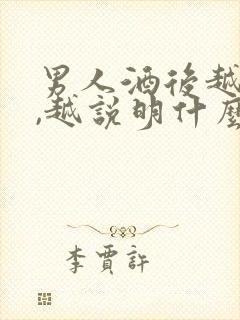 男人酒後越
,越說明什麼
李賈許